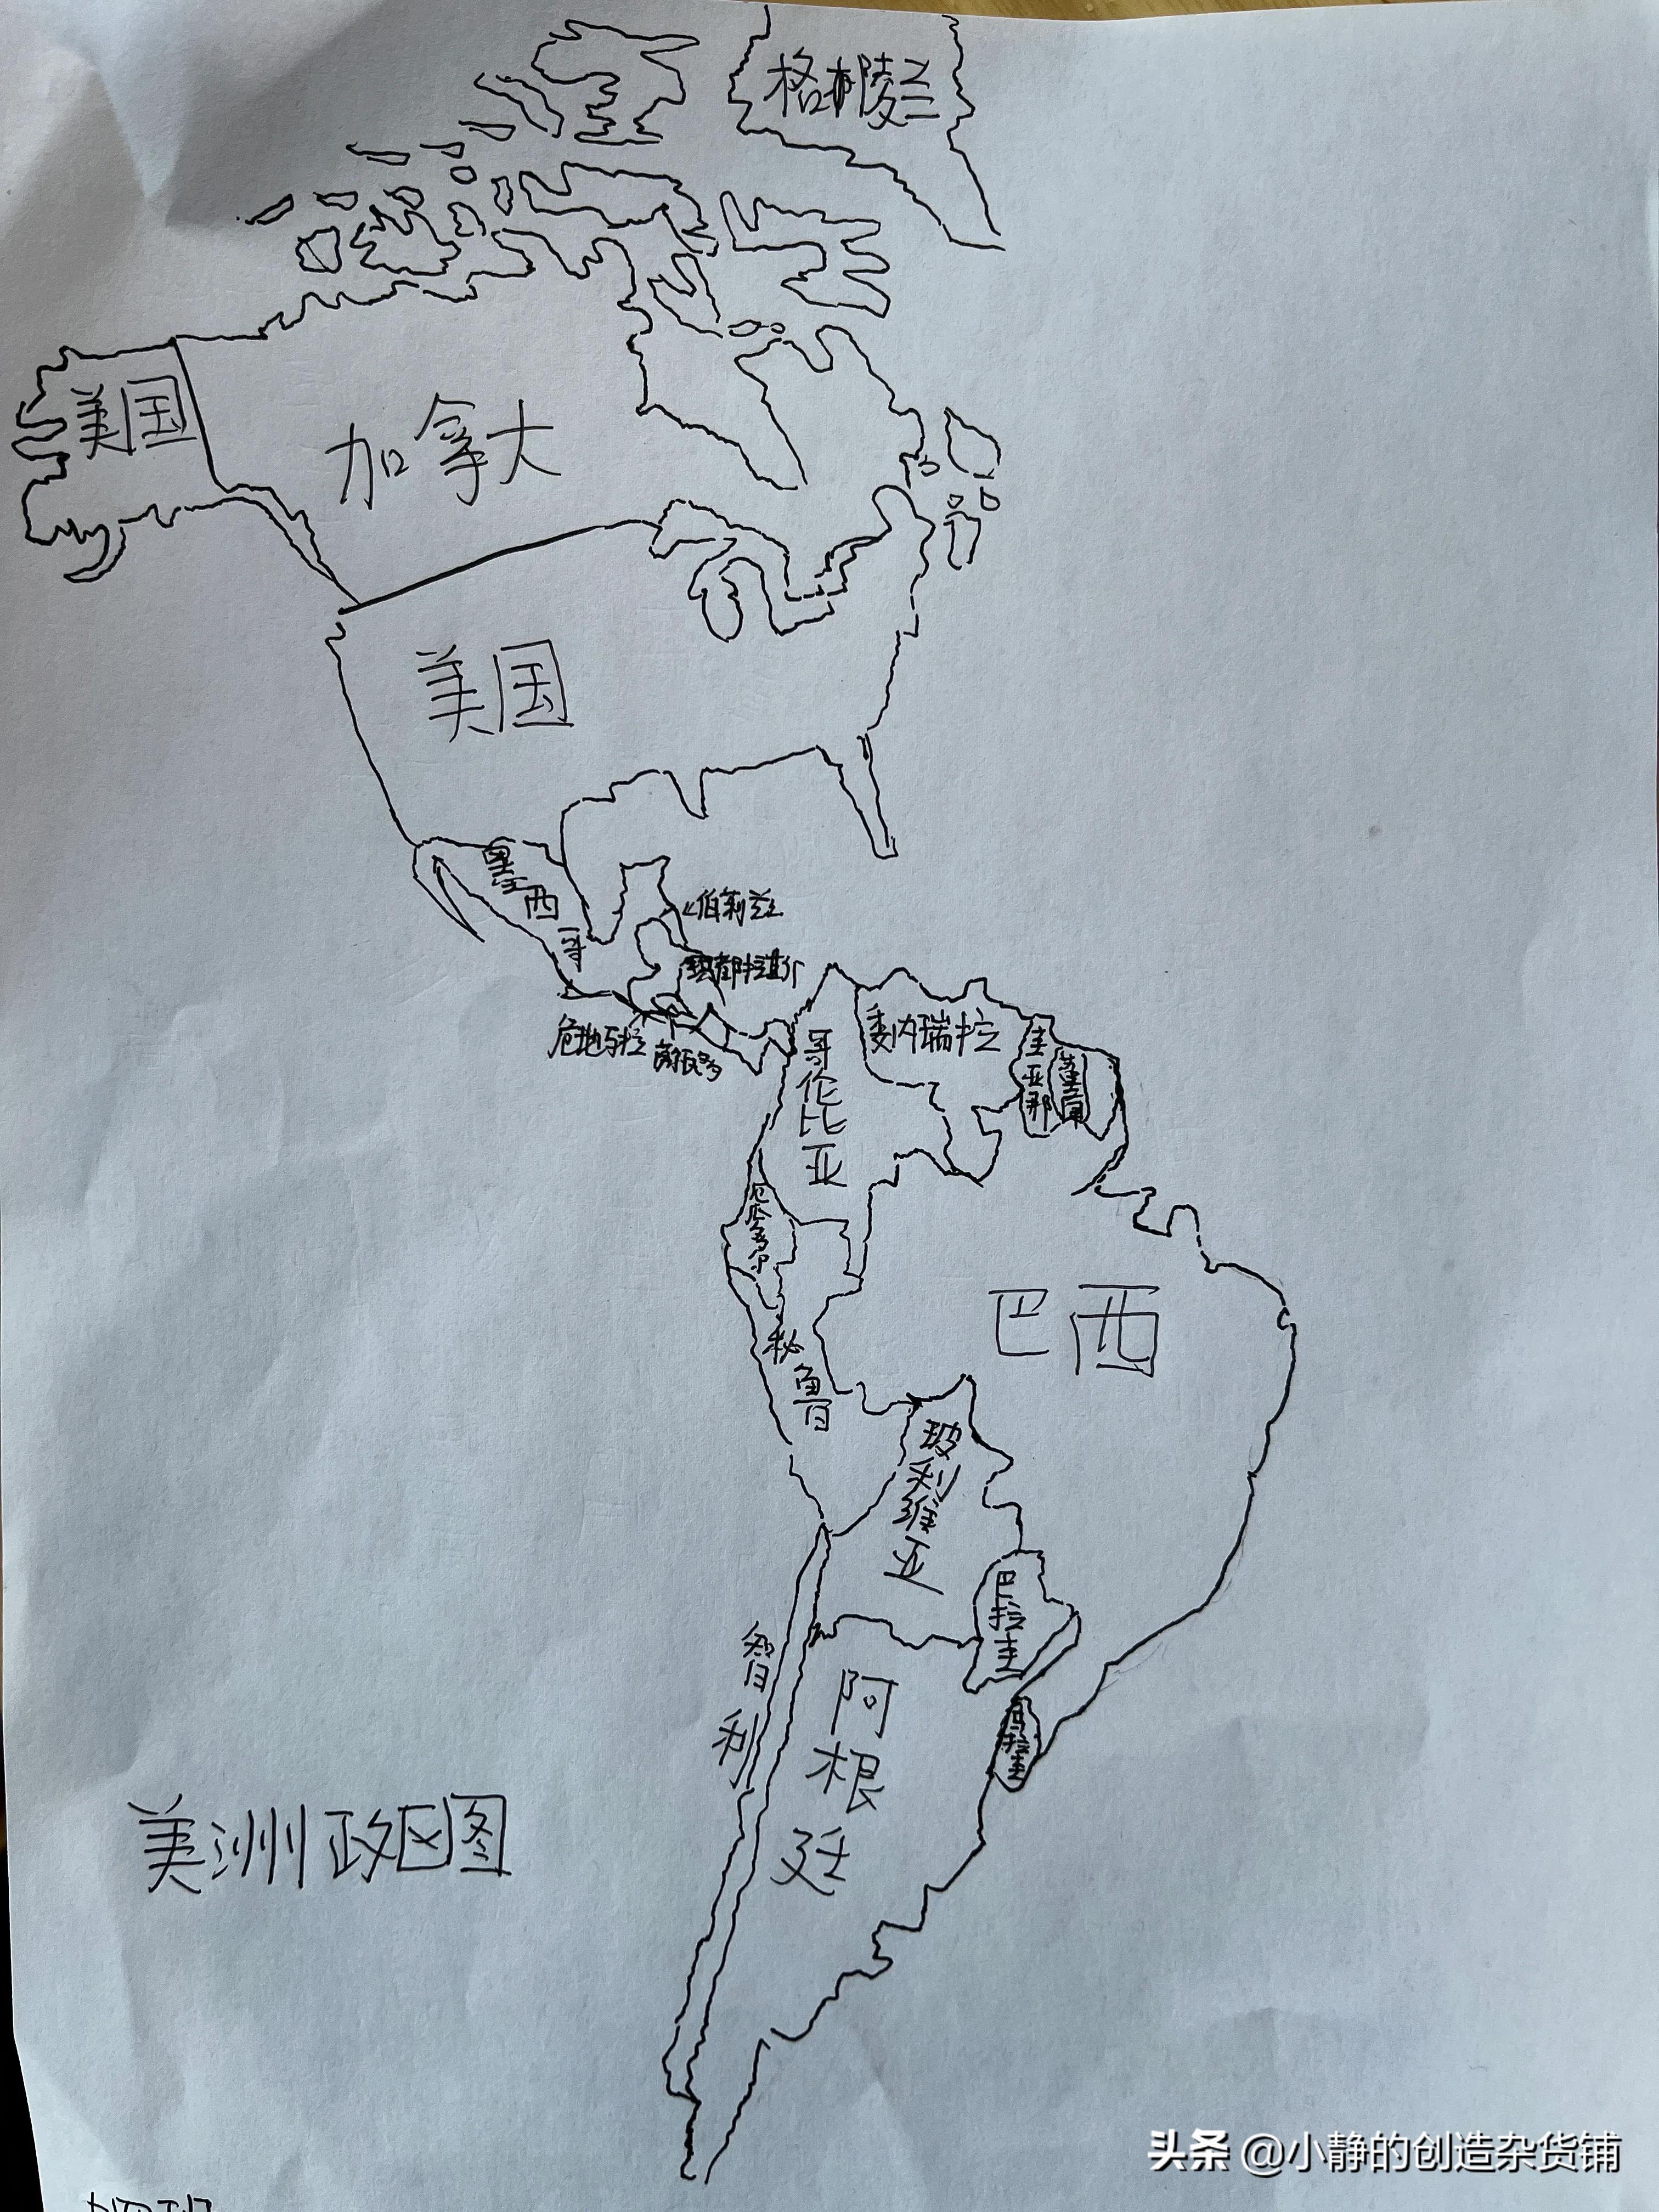 格陵兰
美国
加拿大
美国
墨西哥
伯利兹
洪都拉斯
危地马拉
委内瑞拉
圭亚那
哥伦比亚
厄瓜多尔
巴西
秘鲁
玻利维亚
巴拉圭
智利
阿根廷
乌拉圭
美洲政区图
头条 @小静的创造杂货铺